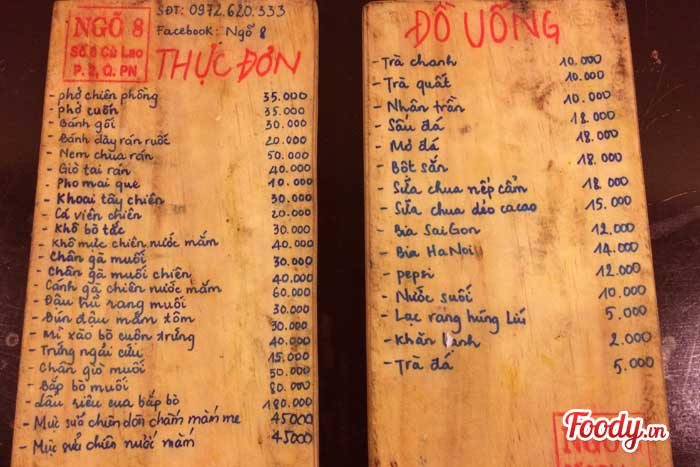 NGÕ 8
Số 6 Cù Lao
P. 2, Q. PN
SĐT: 0972.620.333
Facebook: Ngõ 8
THỰC ĐƠN
- phở chiên phồng 35.000
- phở cuốn 35.000
- Bánh gối 30.000
- Bánh dày rán ruốc 20.000
- Nem chua rán 50.000
- Giò tai rán 40.000
- Pho mai que 10.000
- Khoai tây chiên 30.000
- Cá viên chiên 20.000
- Khô bò tắc 30.000
- Khô mực chiên nước mắm 40.000
- Chân gà muối 30.000
- Chân gà muối chiên 40.000
- Cánh gà chiên nước mắm 60.000
- Đậu hũ rang muối 30.000
- Bún đậu mắm tôm 30.000
- Mì xào bò cuộn trứng 40.000
- Trứng ngải cứu 15.000
- Chân giò muối 50.000
- Bắp bò muối 80.000
- Lẩu riêu cua bắp bò 180.000
- Mực sữa chiên dòn chấm mắm me 45000
- Mực sữa chiên nước mắm 45000
ĐỒ UỐNG
- Trà chanh 10.000
- Trà quất 10.000
- Nhân trần 10.000
- Sấu đá 18.000
- Mơ đá 18.000
- Bột sắn 18.000
- Sữa chua nếp cẩm 18.000
- Sữa chua dẻo cacao 15.000
- Bia SaiGon 12.000
- Bia HaNoi 14.000
- pepsi 12.000
- Nước suối 10.000
- Lạc rang húng lìu 5.000
- Khăn lạnh 2.000
- Trà đá 5.000
NGÕ 8
Foody.vn